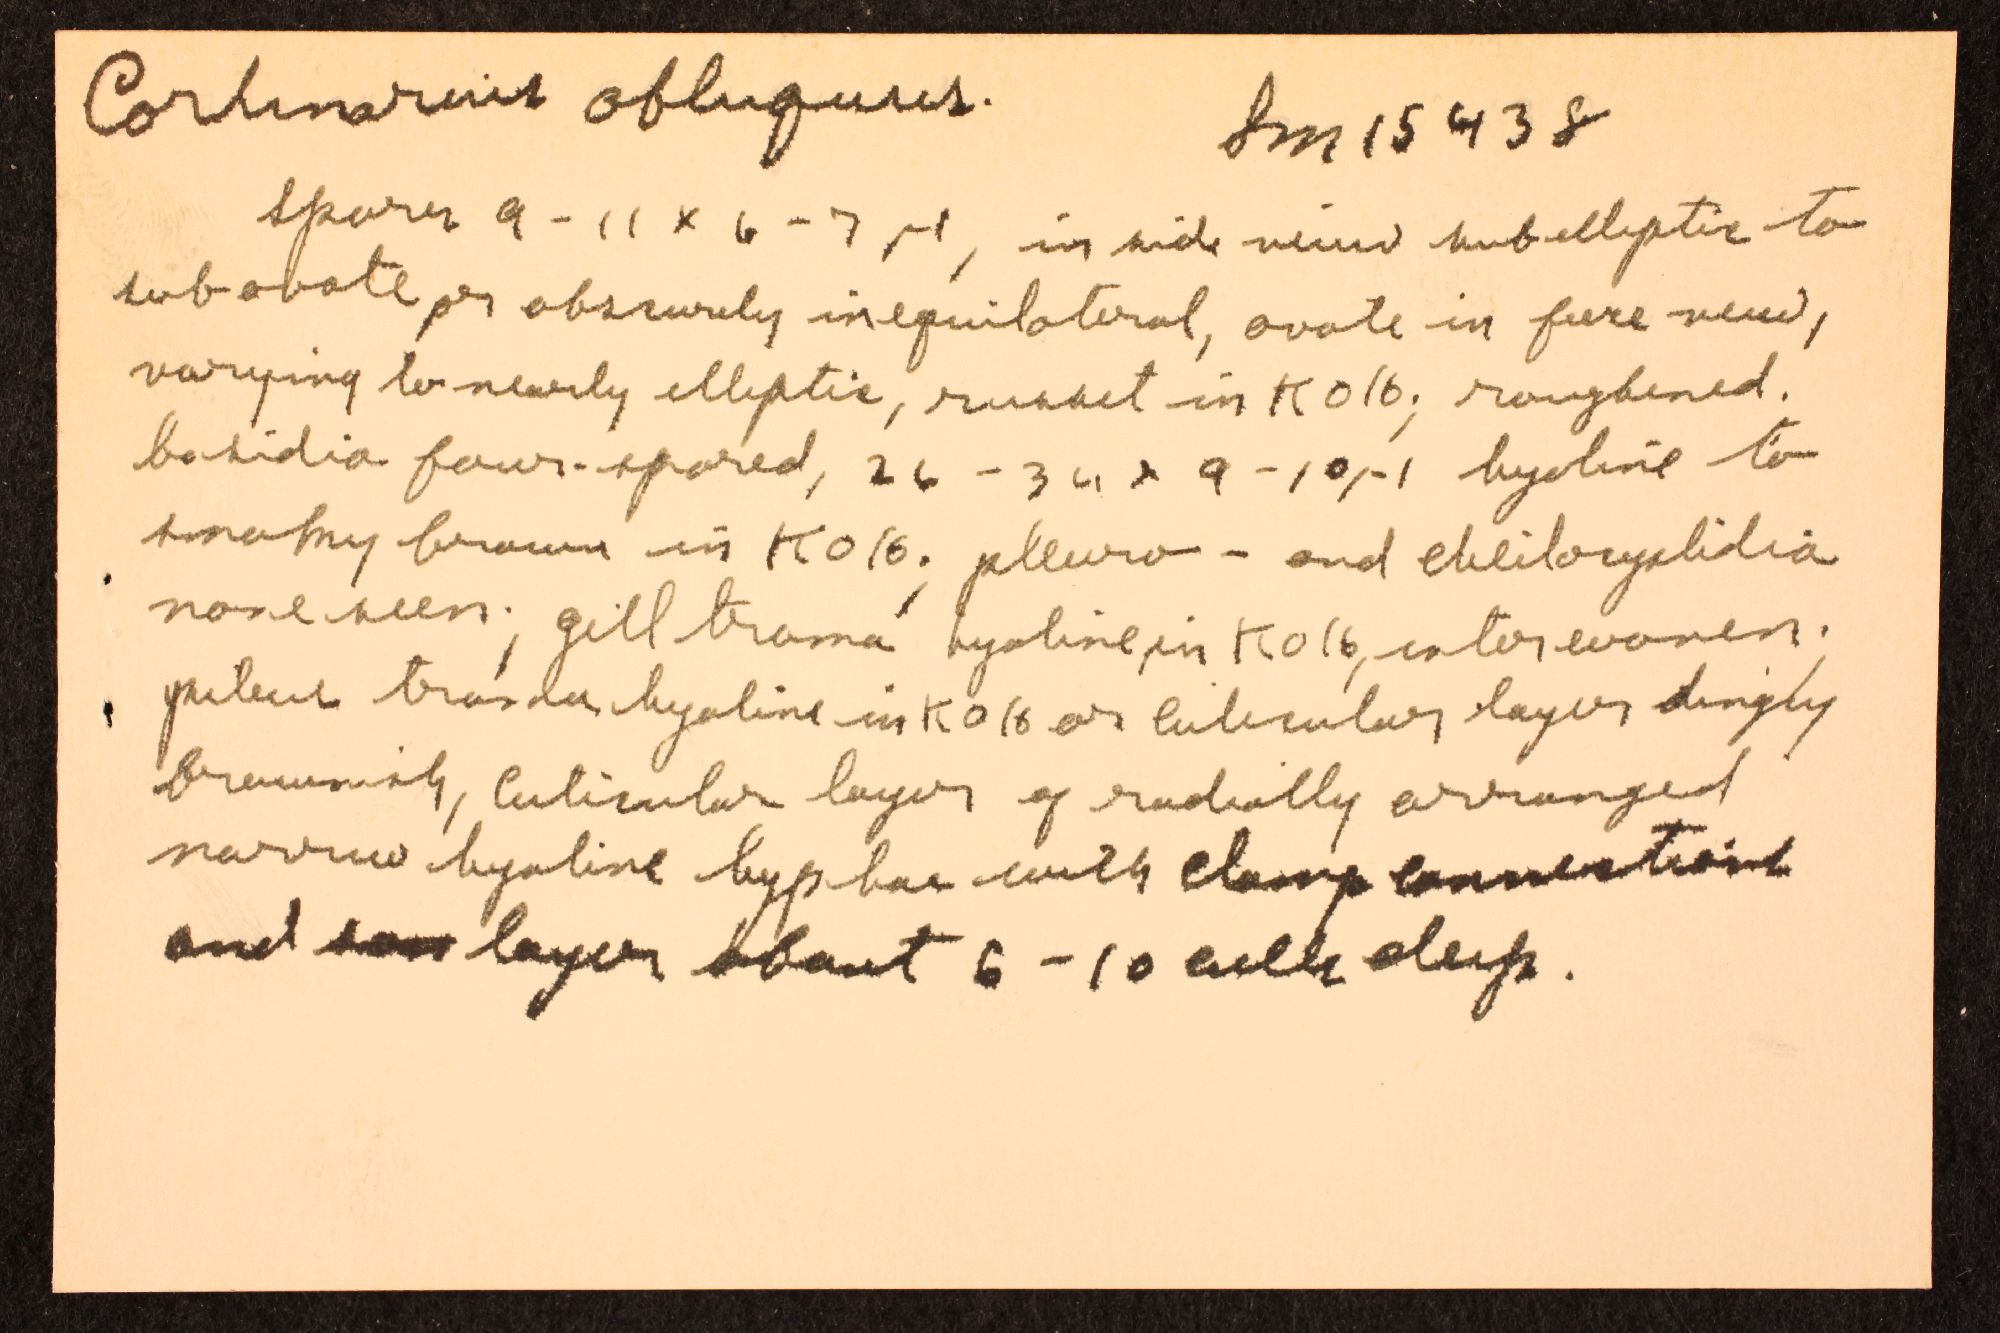 Cortinarius obliquus.
Sm 15438
spores 9-11 x 6-7 µ, in side view subelliptic to
subovate or obscurely inequilateral, ovate in face view,
varying to nearly elliptic, russet in KOH; roughened.
basidia four-spored, 26-34 x 9-10 µ hyaline to
smoky brown in KOH; pleuro- and cheilocystidia
none seen; gill trama hyaline in KOH, interwoven;
pileus trama hyaline in KOH or cuticular layer dingy
brownish, cuticular layer of radially arranged
narrow hyaline hyphae with clamp connections
and layer about 6-10 cells deep.